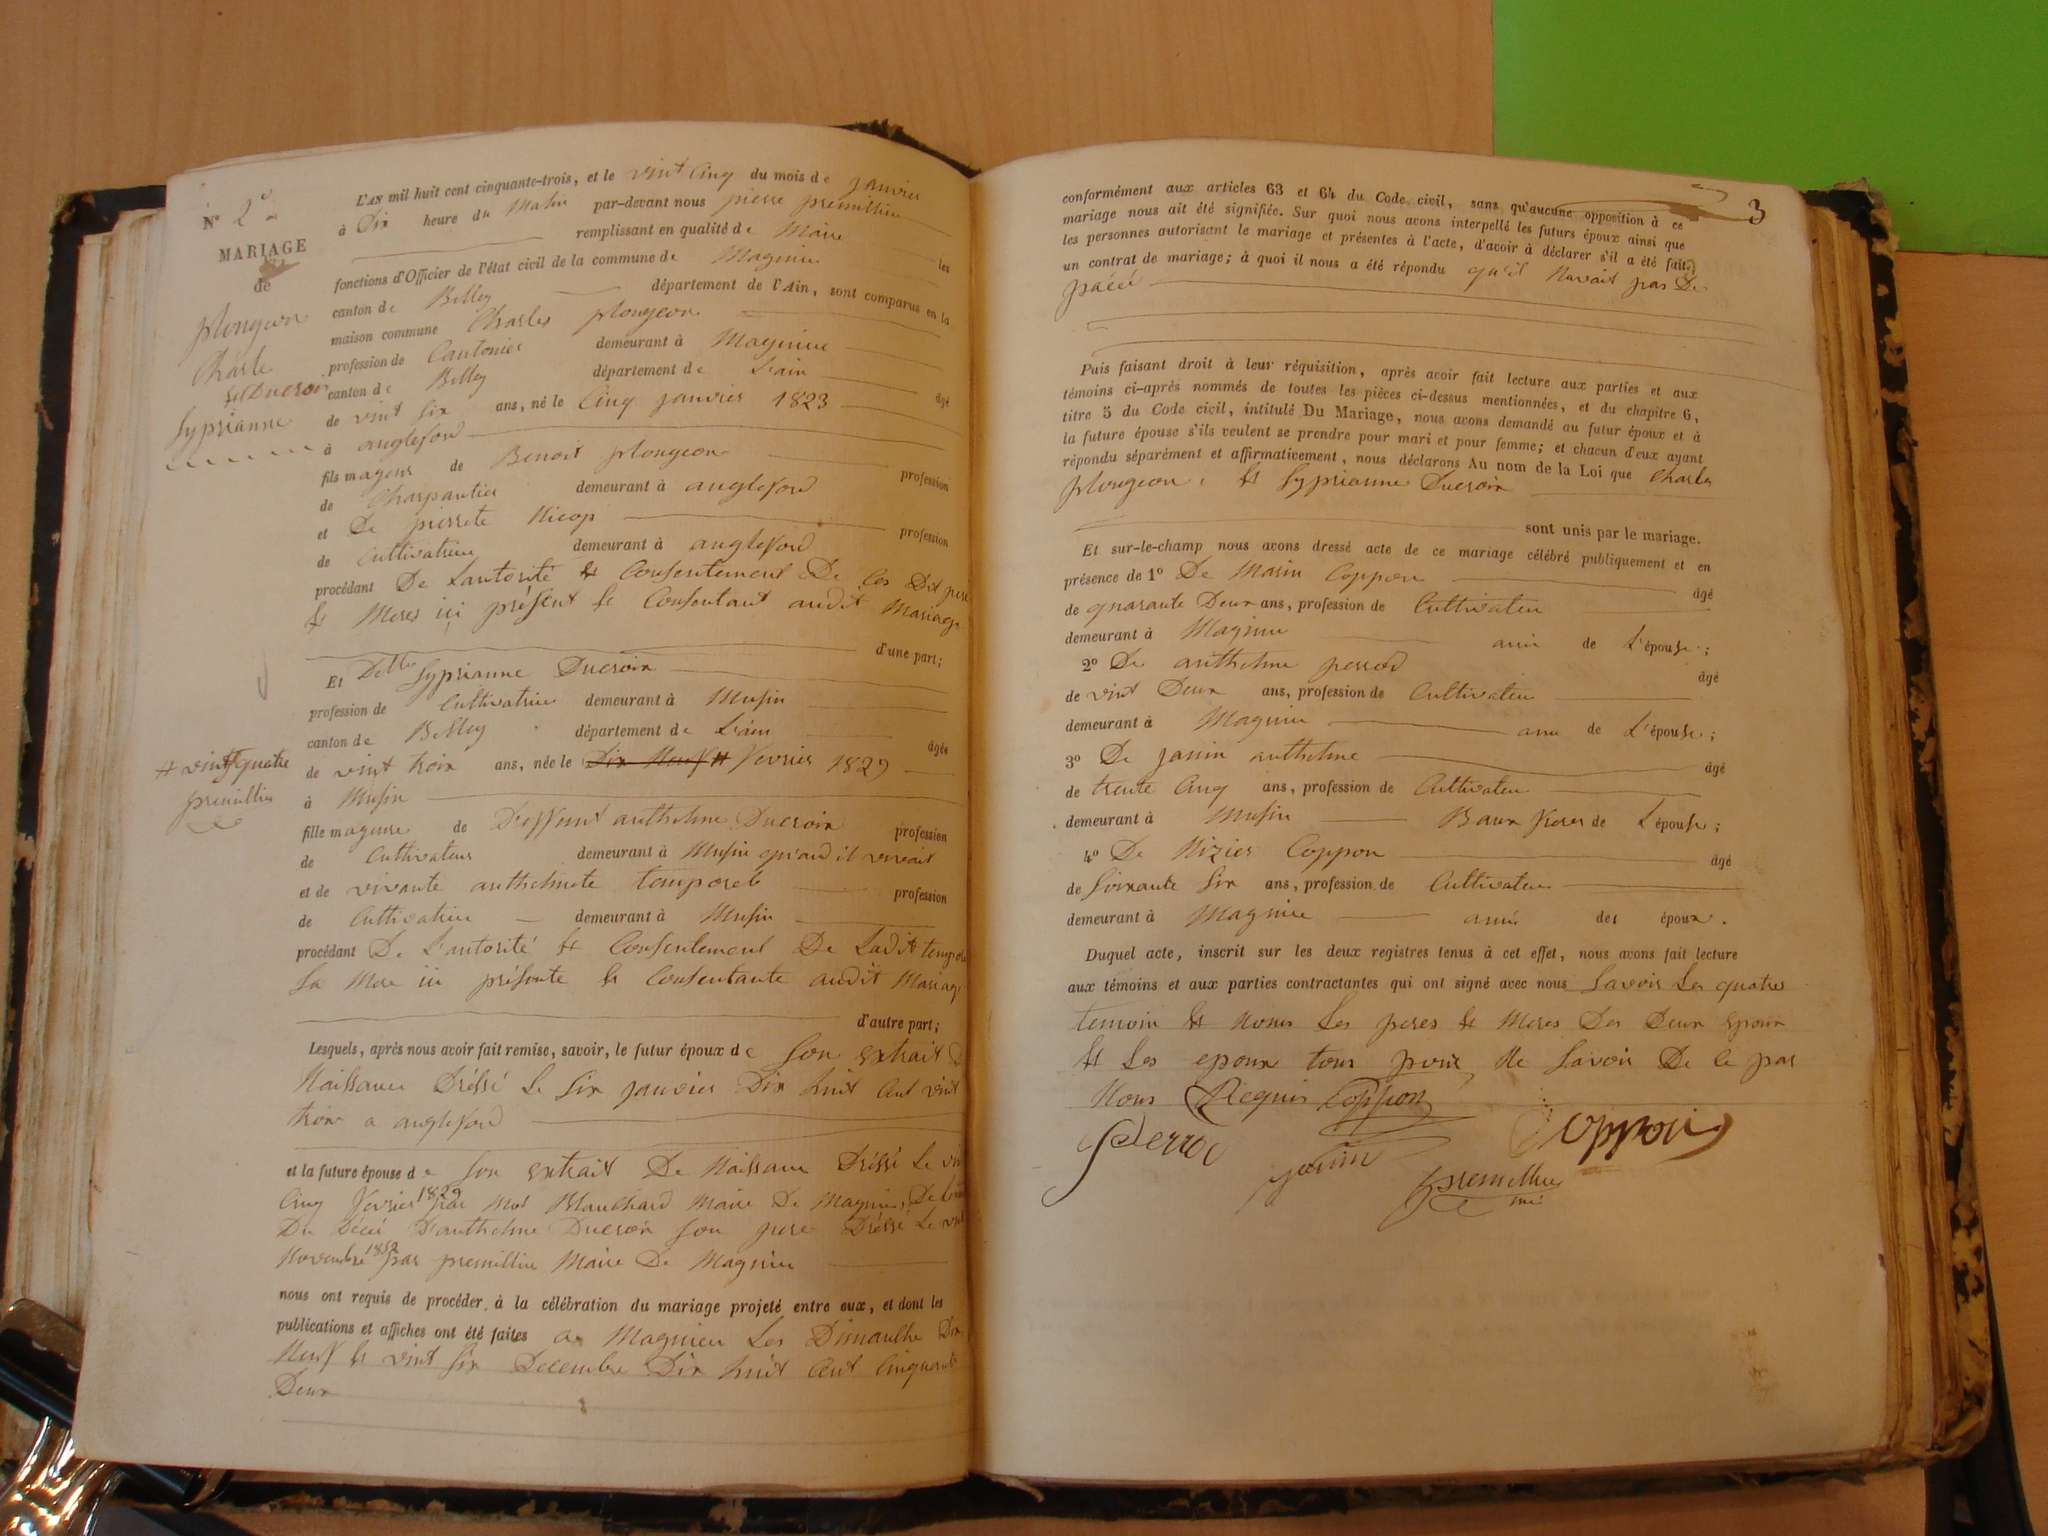 N° 2e
MARIAGE
de
plongeon
Charle
& Ducroin
Syprianne
# vint quatre
premillieu
L'AN mil huit cent cinquante-trois, et le vint cinq du mois de janvier
à Dix heure du Matin par-devant nous pierre premillieu
remplissant en qualité de Maire les
fonctions d'Officier de l'état civil de la commune de Magnieu
canton de Belley département de l'Ain, sont comparus en la
maison commune Charles plongeon
profession de Cantonier demeurant à Magnieu
canton de Belley département de L'ain âgé
de vint six ans, né le Cinq janvier 1823
à angleford
fils mageur de Benoit plongeon profession
de Charpantier demeurant à angleford
et De pierrete Nicop profession
de Cultivatrice demeurant à angleford
procédant De Lautorité & Consentement De Ces Dit pere
& Meres ici présent & Consentant audit Mariage
d'une part;
Et Delle Syprianne Ducroin
profession de Cultivatrice demeurant à Musin
canton de Belley département de L'ain âgée
de vint troix ans, née le Dix Neuf # Fevrier 1829
à Musin
fille mageure de Deffunt anthelme Ducroin profession
de Cultivateur demeurant à Musin quand il vivait
et de vivante anthelmete temporel profession
de Cultivatrice demeurant à Musin
procédant De L'autorité & Consentement De Ladit
Sa Mere ici présente & Consentante audit Mariage
d'autre part;
Lesquels, après nous avoir fait remise, savoir, le futur époux de Son extrait
Naissance Dréssé Le Six janvier Dix huit Cent vint
troix a angleford
et la future épouse de Son extrait De Naissance Dréssé Le
Cinq Fevrier 1829 par Blanchard Maire De Magnieu,
Du Décé D'anthelme Ducroin Son pere Dréssé Le
Novembre par premillieu Maire De Magnieu
nous ont requis de procéder à la célébration du mariage projeté entre eux, et dont les
publications et affiches ont été faites a Magnieu Les Dimanche Dix
Neuf & vint Six Decembre Dix huit Cent Cinquante
Deux
3
conformément aux articles 63 et 64 du Code civil, sans qu'aucune opposition à ce
mariage nous ait été signifiée. Sur quoi nous avons interpellé les futurs époux ainsi que
les personnes autorisant le mariage et présentes à l'acte, d'avoir à déclarer s'il a été fait
un contrat de mariage; à quoi il nous a été répondu qu'il Navait pas De
pacée
Puis faisant droit à leur réquisition, après avoir fait lecture aux parties et aux
témoins ci-après nommés de toutes les pièces ci-dessus mentionnées, et du chapitre 6,
titre 5 du Code civil, intitulé Du Mariage, nous avons demandé au futur époux et à
la future épouse s'ils veulent se prendre pour mari et pour femme; et chacun d'eux ayant
répondu séparément et affirmativement, nous déclarons Au nom de la Loi que Charles
plongeon, & Syprianne Ducroin
sont unis par le mariage.
Et sur-le-champ nous avons dressé acte de ce mariage célébré publiquement et en
présence de 1° De Marin Coppon âgé
de quarante Deux ans, profession de Cultivateur
demeurant à Magnieu ami de L'épouse;
2° De anthelme perrod âgé
de vint Deux ans, profession de Cultivateur
demeurant à Magnieu ami de L'épouse;
3° De janin anthelme âgé
de trente Cinq ans, profession de Cultivateur
demeurant à Musin Baux Frere de L'épouse;
4° De Nizier Coppon âgé
de Soixante Six ans, profession de Cultivateur
demeurant à Magnieu ami des époux.
Duquel acte, inscrit sur les deux registres tenus à cet effet, nous avons fait lecture
aux témoins et aux parties contractantes qui ont signé avec nous Savoir Les quatre
temoin & Nous Les peres & Meres Des Deux epoux
& Les epoux tous pour Ne Savoir De Ce par
Nous Requis Coppon
Perrod janin Coppon
premillieu